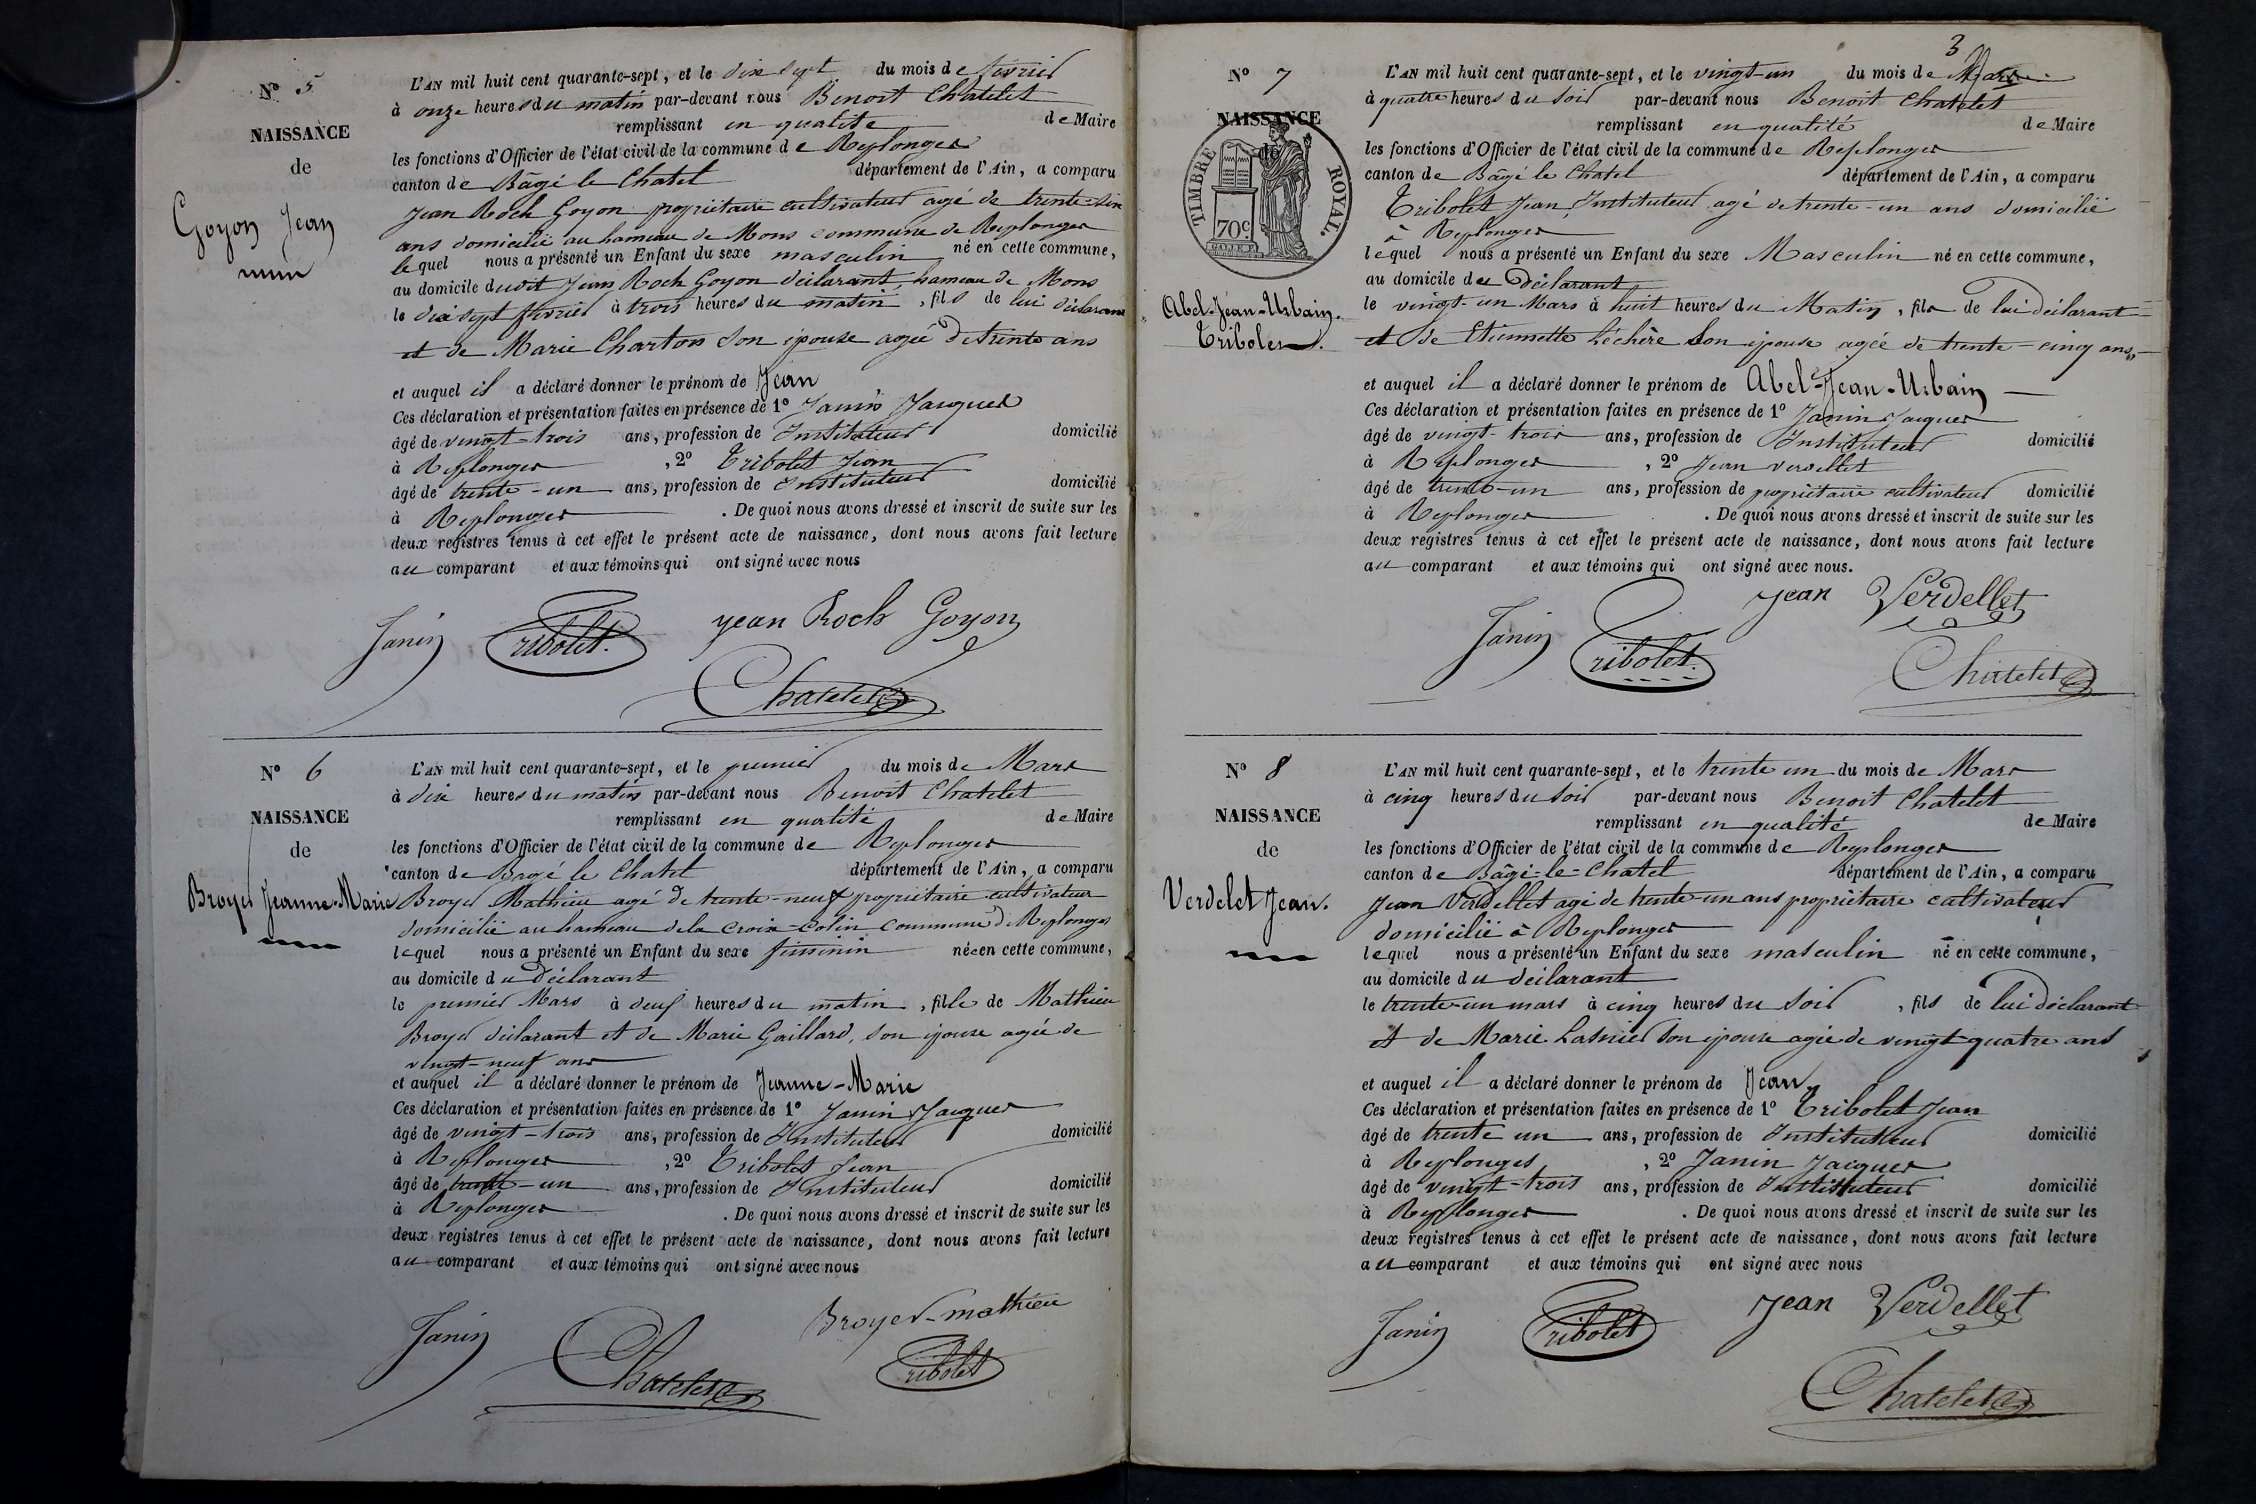 N° 5
NAISSANCE
de
Goyon Jean
L'AN mil huit cent quarante-sept, et le dix sept du mois de février
à onze heures du matin par-devant nous Benoit Chatelet
remplissant en qualité de Maire
les fonctions d'Officier de l'état civil de la commune de Replonges
canton de Bâgé le Chatel département de l'Ain, a comparu
Jean Roch Goyon propriétaire cultivateur agé de trente-six
ans domicilié au hameau de Mons commune de Replonges
lequel nous a présenté un Enfant du sexe masculin né en cette commune,
au domicile dudit Jean Roch Goyon déclarant, hameau de Mons
le dix sept février à trois heures du matin, fils de lui déclarant
et de Marie Charton son épouse agée de trente ans
et auquel il a déclaré donner le prénom de Jean
Ces déclaration et présentation faites en présence de 1° Janin Jacques
âgé de vingt-trois ans, profession de Instituteur domicilié
à Replonges, 2° Tribolet Jean
âgé de trente-un ans, profession de Instituteur domicilié
à Replonges. De quoi nous avons dressé et inscrit de suite sur les
deux registres tenus à cet effet le présent acte de naissance, dont nous avons fait lecture
au comparant et aux témoins qui ont signé avec nous
Janin Tribolet. jean Roch Goyon
Chatelet
N° 6
NAISSANCE
de
Broyer Jeanne-Marie
L'AN mil huit cent quarante-sept, et le premier du mois de Mars
à dix heures du matin par-devant nous Benoit Chatelet
remplissant en qualité de Maire
les fonctions d'Officier de l'état civil de la commune de Replonges
canton de Bagé le Chatel département de l'Ain, a comparu
Broyer Mathieu agé de trente-neuf propriétaire cultivateur
domicilié au hameau de la croix-colin commune de Replonges
lequel nous a présenté un Enfant du sexe féminin née en cette commune,
au domicile du déclarant
le premier Mars à deux heures du matin, fille de Mathieu
Broyer déclarant et de Marie Gaillard, son épouse agée de
vingt-neuf ans
et auquel il a déclaré donner le prénom de Jeanne-Marie
Ces déclaration et présentation faites en présence de 1° Janin Jacques
âgé de vingt-trois ans, profession de Instituteur domicilié
à Replonges, 2° Tribolet Jean
âgé de trente-un ans, profession de Instituteur domicilié
à Replonges. De quoi nous avons dressé et inscrit de suite sur les
deux registres tenus à cet effet le présent acte de naissance, dont nous avons fait lecture
au comparant et aux témoins qui ont signé avec nous
Janin Chatelet Broyer-mathieu
Tribolet
3
N° 7
NAISSANCE
de
TIMBRE ROYAL.
70c.
Abel-Jean-Urbain.
Tribolet.
L'AN mil huit cent quarante-sept, et le vingt-un du mois de Mars
à quatre heures du soir par-devant nous Benoit Chatelet
remplissant en qualité de Maire
les fonctions d'Officier de l'état civil de la commune de Replonges
canton de Bâgé le Chatel département de l'Ain, a comparu
Tribolet Jean, Instituteur agé de trente-un ans domicilié
à Replonges
lequel nous a présenté un Enfant du sexe Masculin né en cette commune,
au domicile du Déclarant
le vingt-un Mars à huit heures du Matin, fils de lui déclarant
et de Etiennette Léchère son épouse agée de trente-cinq ans,
et auquel il a déclaré donner le prénom de Abel-Jean-Urbain
Ces déclaration et présentation faites en présence de 1° Janin Jacques
âgé de vingt-trois ans, profession de Instituteur domicilié
à Replonges, 2° Jean verdellet
âgé de trente-un ans, profession de propriétaire cultivateur domicilié
à Replonges. De quoi nous avons dressé et inscrit de suite sur les
deux registres tenus à cet effet le présent acte de naissance, dont nous avons fait lecture
au comparant et aux témoins qui ont signé avec nous.
Janin Tribolet. jean Verdellet
Chatelet
N° 8
NAISSANCE
de
Verdelet Jean.
L'AN mil huit cent quarante-sept, et le trente un du mois de Mars
à cinq heures du soir par-devant nous Benoit Chatelet
remplissant en qualité de Maire
les fonctions d'Officier de l'état civil de la commune de Replonges
canton de Bâgé-le-Chatel département de l'Ain, a comparu
Jean Verdellet agé de trente-un ans propriétaire cultivateur
domicilié à Replonges
lequel nous a présenté un Enfant du sexe masculin né en cette commune,
au domicile du déclarant
le trente-un mars à cinq heures du soir, fils de lui déclarant
et de Marie Lasnier son épouse agée de vingt quatre ans
et auquel il a déclaré donner le prénom de Jean
Ces déclaration et présentation faites en présence de 1° Tribolet Jean
âgé de trente un ans, profession de Instituteur domicilié
à Replonges, 2° Janin Jacques
âgé de vingt-trois ans, profession de Instituteur domicilié
à Replonges. De quoi nous avons dressé et inscrit de suite sur les
deux registres tenus à cet effet le présent acte de naissance, dont nous avons fait lecture
au comparant et aux témoins qui ont signé avec nous
Janin Tribolet jean Verdellet
Chatelet